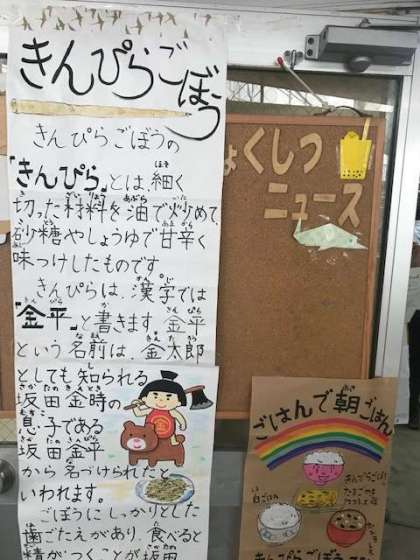 きんぴらごぼう
きんぴらごぼうの
「きんぴら」とは、細く
切った材料を油で炒めて、
砂糖やしょうゆで甘辛く
味つけしたものです。
きんぴらは、漢字では
「金平」と書きます。金平
という名前は、金太郎
としても知られる
坂田金時の
息子である
坂田金平
から名づけられたと
いわれます。
ごぼうにしっかりとした
歯ごたえがあり、食べると
精がつくことが坂田
金
ょくしつ
ニュース
ごはんで朝ごはん
白ごはん